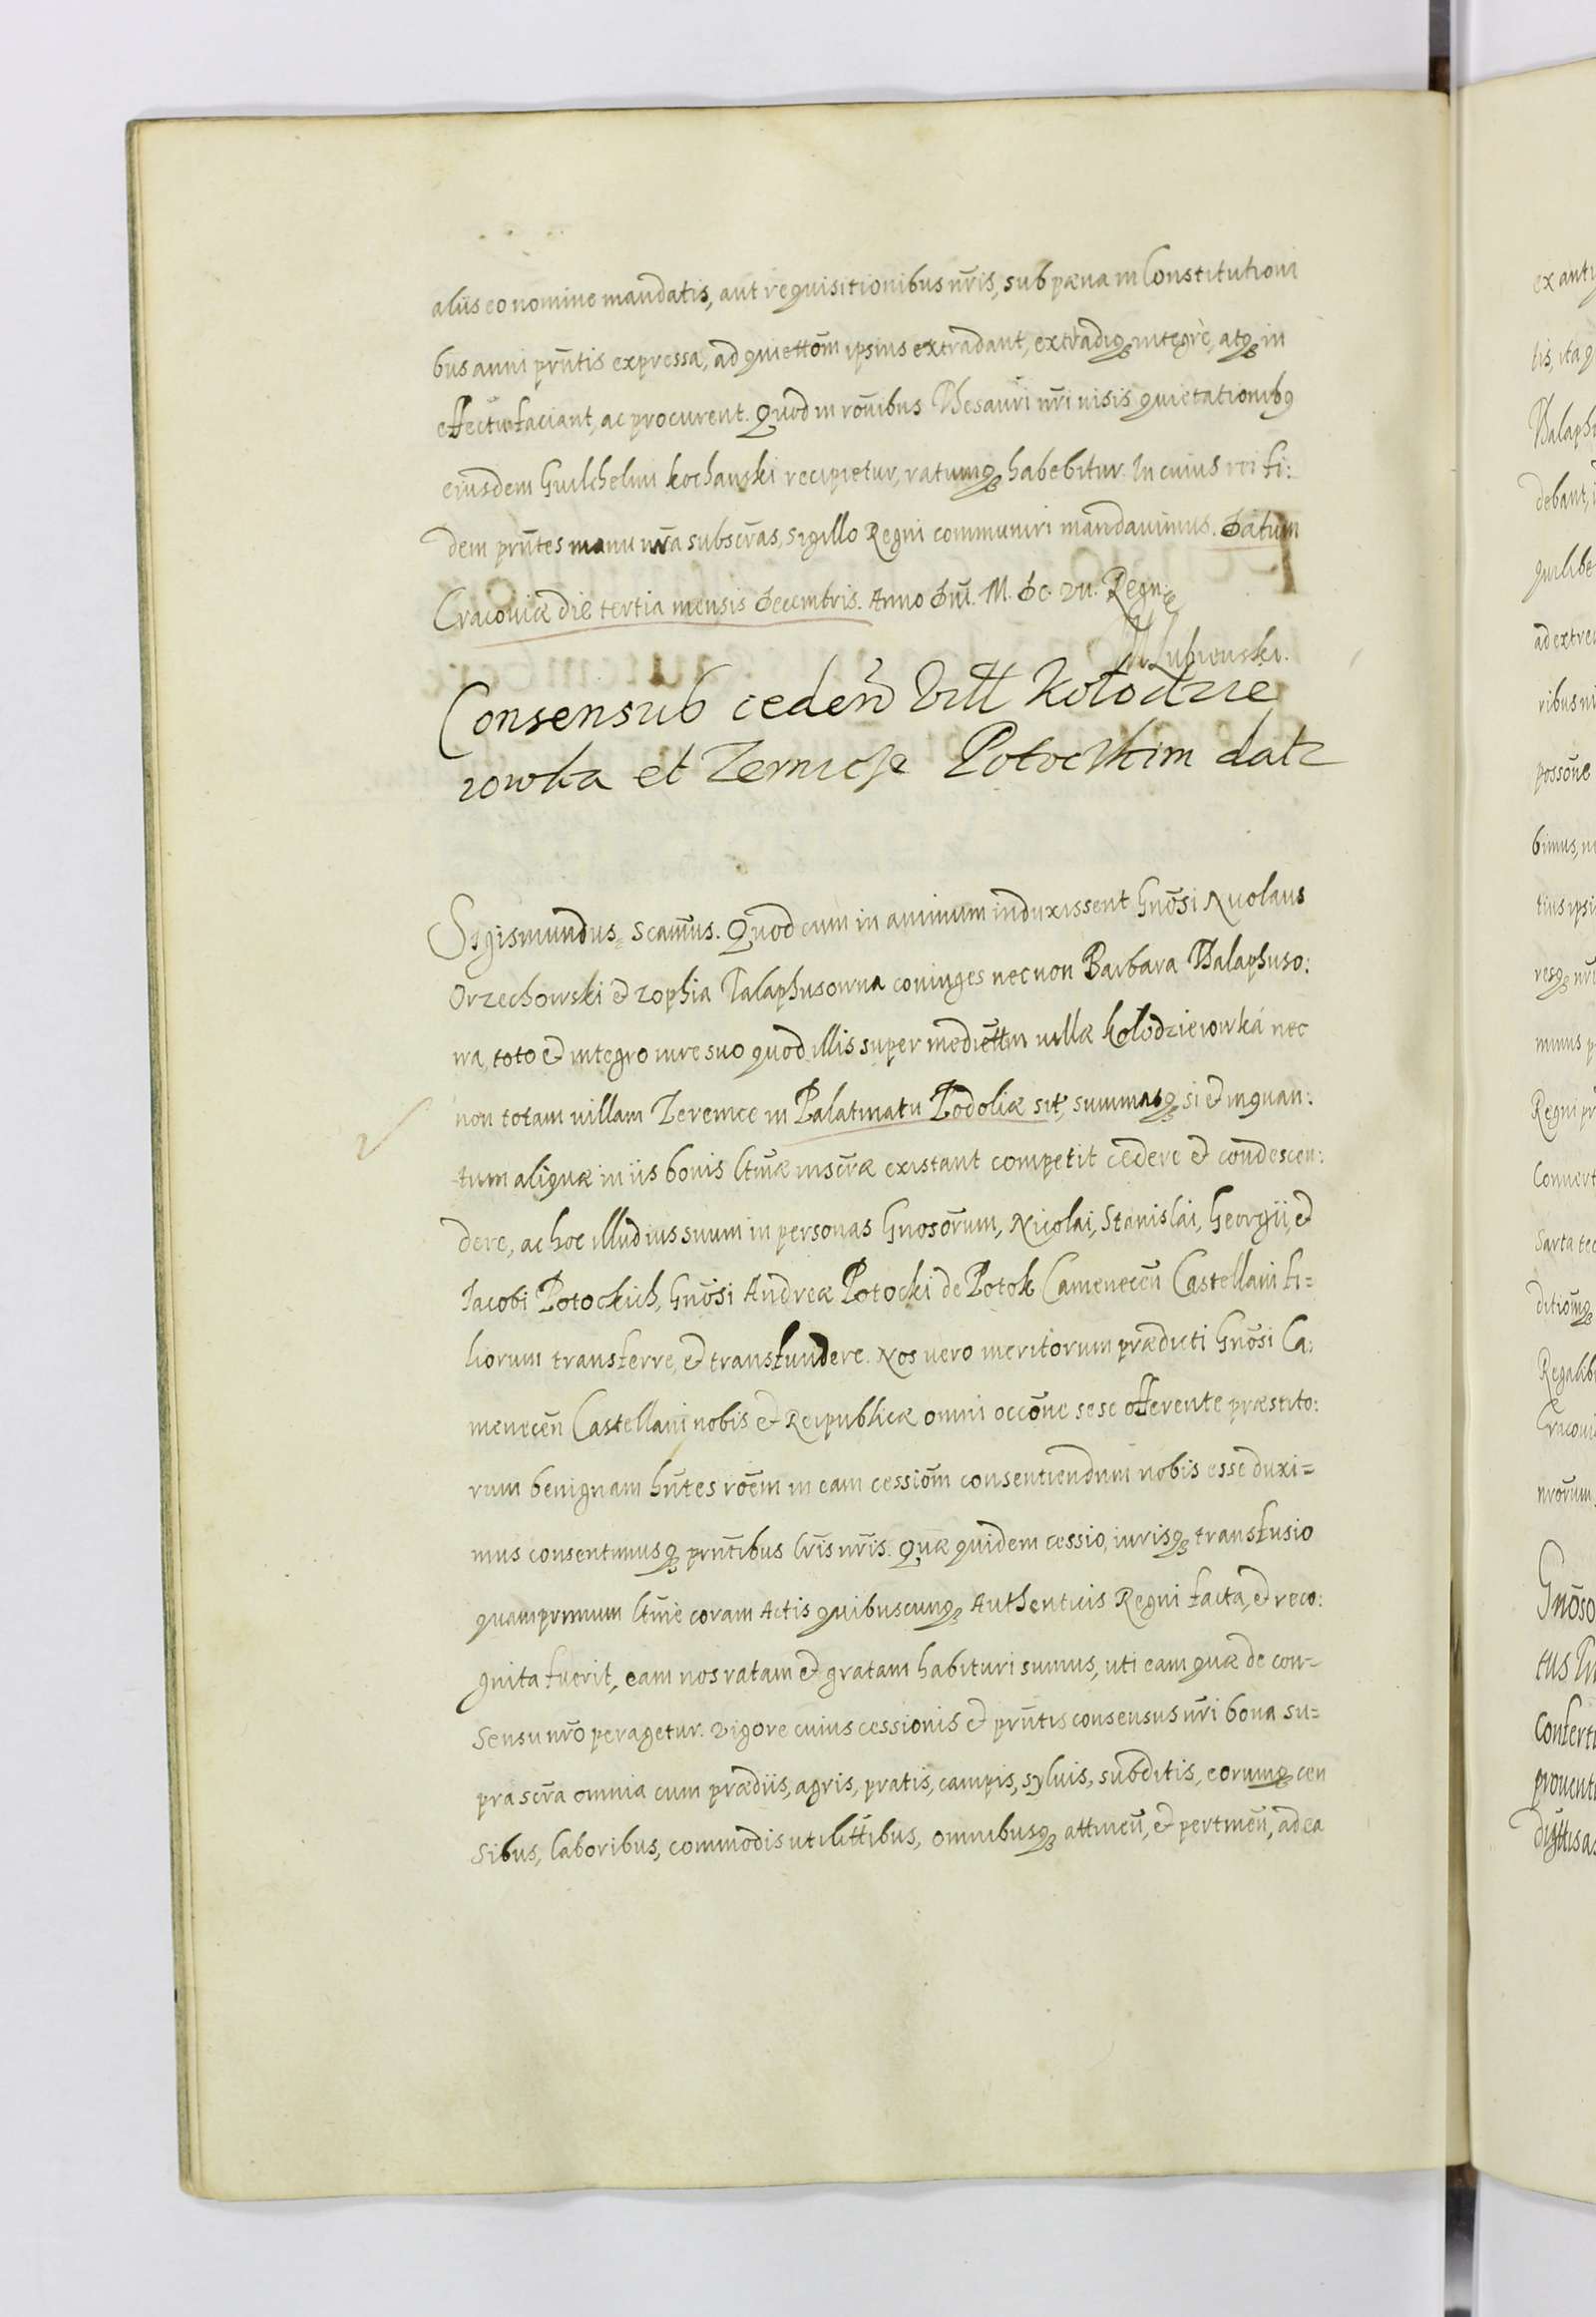 aliis eo nomine mandatis, aut requisitionibus nr̃is, sub pæna in Constitutioni
bus anni prñtis expressa, ad quiettōm ipsius extradant, extradiq; integrè, atq; in
effectu faciant, ac procurent. Quod in rōnibus Thesauri nr̃i visis quietationibq
eiusdem Guilchelmi Kochanski recipietur, ratumq; habebitur. In cuius rei fi:
dem prñtes manu nr̃a subscr̃as, sigillo Regni communiri mandauimus. Datum
Cracouiæ die tertia mensis Decembris. Anno Dñi. M. Dc. VII. Regn:
Lubienski.
Consensus ceden̄ Vill Kołodzie
iowka et Zermcse Potockim datz
Sigismundus scam̃us. Quod cum in animum induxissent Gnōsi Nicolaus
Orzechowski et Zophia Talaphusowna coniuges nec non Barbara Thalaphuso:
wa, toto et integro iure suo quod illis super medietm villæ Kolodzieiowká nec
non totam uillam Zeremce in Palatinatu Podoliæ sit, summasq; si et inquan:
tum aliquæ in iis bonis ltm̃æ inscr̃æ existant competit cedere et condescen:
dere, ac hoc illud ius suum in personas Gnosōrum, Nicolai, Stanislai, Georgii, et
Iacobi Potockich, Gnōsi Andreæ Potocki de Potok Camenecen̄ Castellani fi=
liorum transferre, et transfundere. Nos uero meritorum prædicti Gnōsi Ca:
menecen̄ Castellani nobis et Reipublicæ omni occōne sese offerente præstito:
rum benignam hñtes rōem in eam cessiōm consentiendum nobis esse duxi=
mus consentimusq; prñtibus lr̃is nr̃is. Quæ quidem cessio, iurisq; transfusio
quamprimum ltm̃e coram Actis quibuscunq; Authenticis Regni facta, et reco:
gnita fuerit, eam nos ratam et gratam habituri sumus, uti eam quæ de con-
sensu nr̃o peragetur. Vigore cuius cessionis et prñtis consensus nr̃i bona su=
pra scr̃a omnia cum prædiis, agris, pratis, campis, syluis, subditis, eorumq; cen
sibus, laboribus, commodis utilittibus, omnibusq; attinen̄, et pertinen̄, ad ea